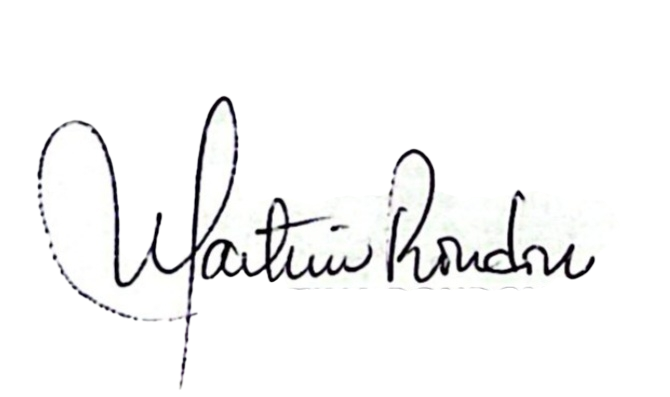 Martin Rondon